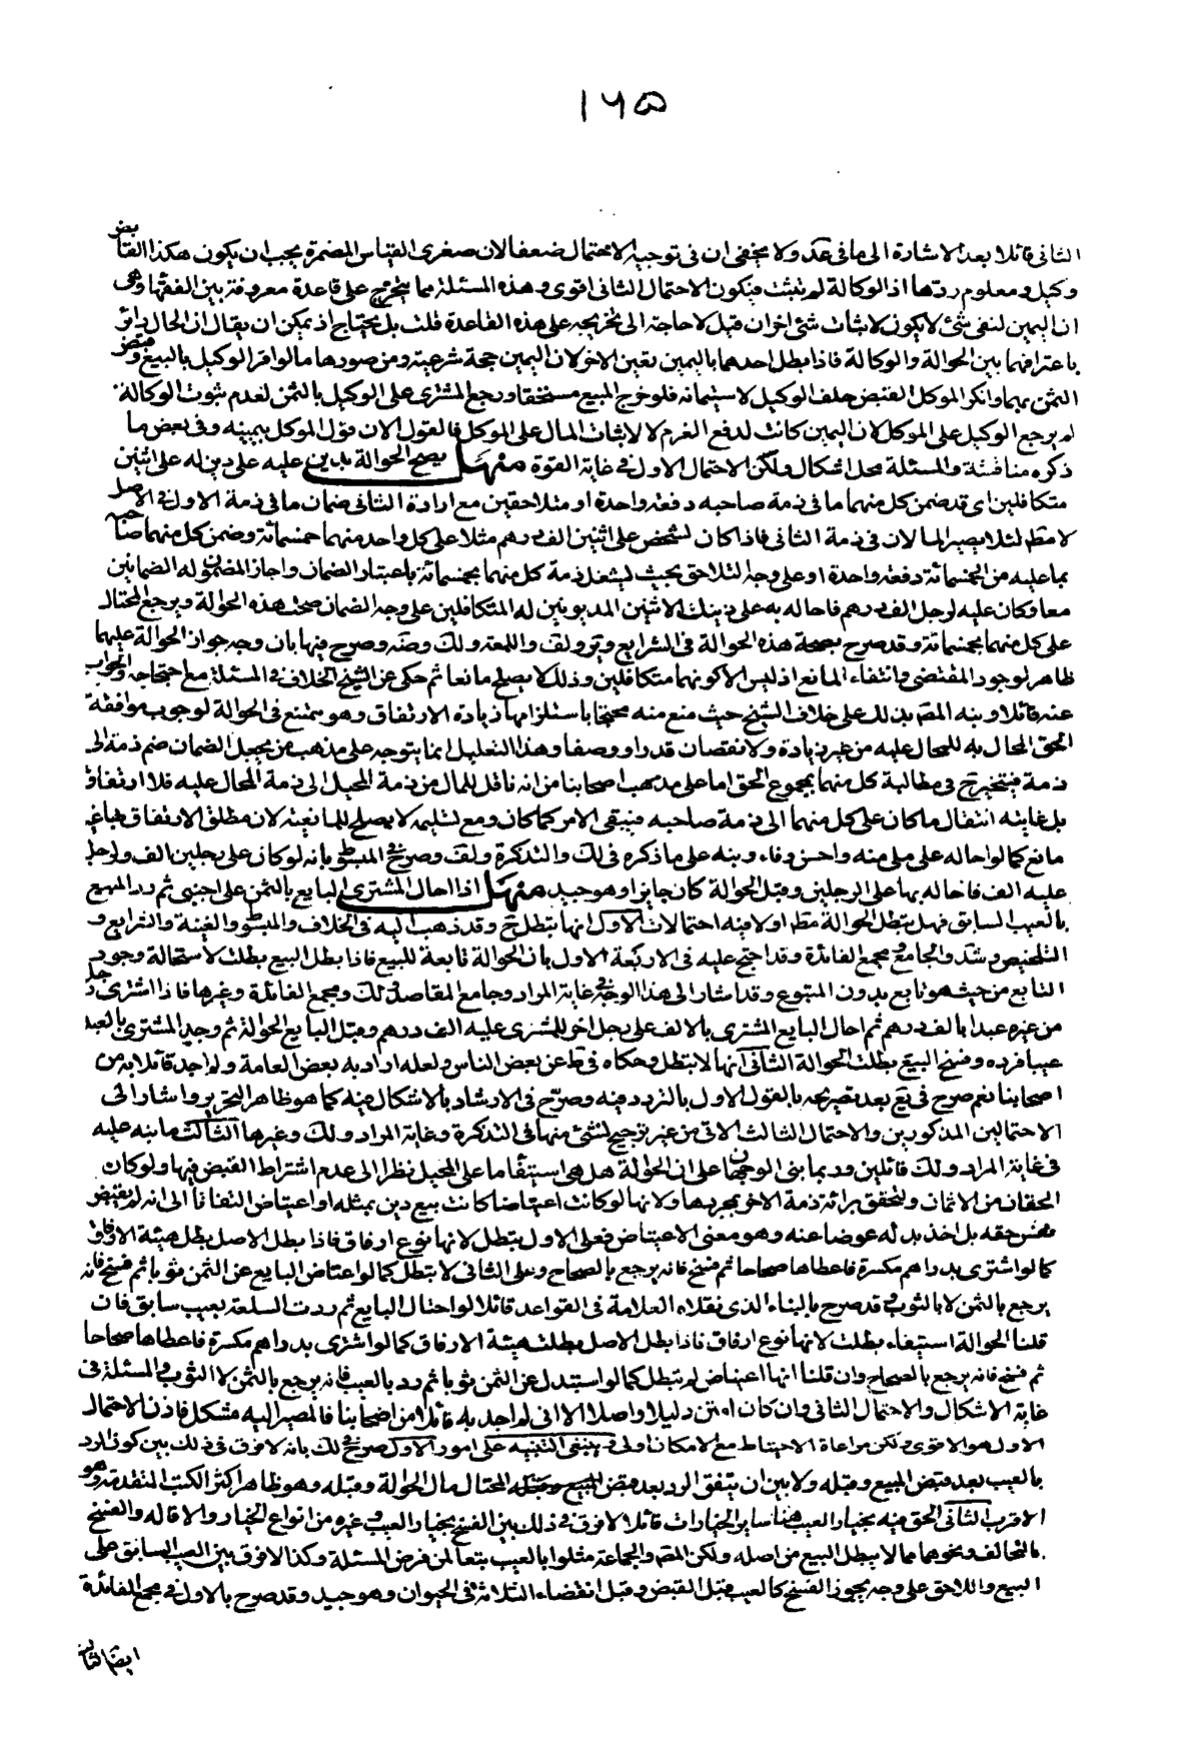 ۱۶۵
الثانى قائلا بعد الاشارة الى ما فى عد ولا يخفى ان فى توجيه الاحتمال ضعفا لان صغرى القياس المضمرة يجب ان يكون هكذا القابض
وكيل ومعلوم ردتها اذ الوكالة لم يثبت فيكون الاحتمال الثانى اقوى وهذه المسئلة مما يتخرج على قاعدة معروفة بين الفقهاء وهى
ان اليمين لنفى شئ لا يكون لاثبات شئ اخر ان قيل لا حاجة الى تخريجه على هذه القاعدة قلت بل يحتاج اذ يمكن ان يقال ان الحال دائر
باعترافهما بين الحوالة والوكالة فاذا بطل احدهما باليمين تعين الاخر لان اليمين حجة شرعية ومن صورها ما لو اقر الوكيل بالبيع وقبض
الثمن بهما وانكر الموكل القبض حلف الوكيل لاستيمانه فلو خرج المبيع مستحقا ورجع المشترى على الوكيل بالثمن لعدم ثبوت الوكالة
لم يرجع الوكيل على الموكل لان اليمين كانت لدفع الغرم لا لاثبات المال على الموكل فالقول الان قول الموكل بيمينه وفى بعض ما
ذكره مناقشة والمسئلة محل اشكال ولكن الاحتمال الاول فى غاية القوة منها يصح الحوالة بدين عليه على دين له على اثنين
متكافلين اى قد ضمن كل منهما ما فى ذمة صاحبه دفعة واحدة او متلاحقين مع ارادة الثانى ضمان ما فى ذمة الاول فى الاصل
لا مطلقا لئلا يصير المالان فى ذمة الثانى فاذا كان لشخص على اثنين الف درهم مثلا على كل واحد منهما خمسمائة وضمن كل منهما صاحبه
بما عليه من الخمسمائة دفعة واحدة او على وجه التلاحق بحيث ليشغل ذمة كل منهما بخمسمائة باعتبار الضمان واجاز المضمون له الضمانين
معا وكان عليه لرجل الف درهم فاحاله به على ذينك الاثنين المديونين له المتكافلين على وجه الضمان صحت هذه الحوالة ويرجع المحتال
على كل منهما بخمسمائة وقد صرح بصحة هذه الحوالة فى الشرايع و ولف واللمعة ولك وضه وصرح فيها بان وجه جواز الحوالة عليهما
ظاهر لوجود المقتضى وانتفاء المانع اذ ليس الا كونهما متكافلين وذلك لا يصلح مانعا ثم حكى عن الشيخ الخلاف فى المسئلة مع احتجاجه والجواب
عنه قائلا ونبه المص بذلك على خلاف الشيخ حيث منع منه محتجا باستلزامها زيادة الارتفاق وهو ممتنع فى الحوالة لوجوب موافقة
الحق المحال به للمحال عليه من غير زيادة ولا نقصان قدرا ووصفا وهذا التعليل انما يتوجه على مذهب من يجعل الضمان ضم ذمة الى
ذمة فيتخير ح فى مطالبة كل منهما بمجموع الحق اما على مذهب اصحابنا من انه ناقل للمال من ذمة المحيل الى ذمة المحال عليه فلا ارتفاق
بل غايته انتقال ما كان على كل منهما الى ذمة صاحبه فيبقى الامر كما كان ومع تسليمه لا يصلح للمانعية لان مطلق الارتفاق بها غير
مانع كما لو احاله على ملى منه واحسن وفاء ونبه على ما ذكره فى لك والتذكرة ولف وصرح فى المبسوط بانه لو كان على رجلين الف ولرجل
عليه الف فاحاله بها على الرجلين وقبل الحوالة كان جايزا وهو جيد منها اذا احال المشترى البايع بالثمن على اجنبى ثم رد المبيع
بالعيب السابق فهل يبطل الحوالة مطلقا او لا فيه احتمالات الاول انها تبطل ح وقد ذهب اليه فى الخلاف والمبسوط والغنية والشرايع و
التلخيص و شد والجامع ومجمع الفائدة وقد احتج عليه فى الاربعة الاول بان الحوالة تابعة للبيع فاذا بطل البيع بطلت لاستحالة وجود
التابع من حيث هو تابع بدون المتبوع وقد اشار الى هذا الوجه فى غاية المراد وجامع المقاصد ولك ومجمع الفائدة وغيرها فاذا اشترى رجل
من غيره عبدا بالف درهم ثم احال البايع المشترى بالالف على رجل اخر للمشترى عليه الف درهم وقبل البايع الحوالة ثم وجد المشترى بالعبد
عيبا فرده وفسخ البيع بطلت الحوالة الثانى انها لا تبطل وحكاه فى ط عن بعض الناس ولعله اراد به بعض العامة ولم اجد قائلا به من
اصحابنا نعم صرح فى يع بعد تصريحه بالقول الاول بالتردد فيه وصرح فى الارشاد بالاشكال فيه كما هو ظاهر التحرير واشار الى
الاحتمالين المذكورين والاحتمال الثالث الاتى من غير ترجيح لشئ منها فى التذكرة وغاية المراد ولك وغيرها الثالث ما نبه عليه
فى غاية المراد ولك قائلين وربما بنى الوجهان على ان الحوالة هل هى استيفاء ما على المحيل نظرا الى عدم اشتراط القبض فيها ولو كان
الحقان من الاثمان ولتحقق برائة ذمة الاخر بمجردها ولانها لو كانت اعتياضا كانت بيع دين بمثله او اعتياض التفاتا الى انه لم يقبض
نفس حقه بل اخذ بدله عوضا عنه وهو معنى الاعتياض فعلى الاول يبطل لانها نوع ارفاق فاذا بطل الاصل بطل هيئة الارفاق
كما لو اشترى بدراهم مكسرة فاعطاها صحاحا ثم فسخ فانه يرجع بالصحاح وعلى الثانى لا تبطل كما لو اعتاض البايع عن الثمن ثوبا ثم فسخ فانه
يرجع بالثمن لا بالثوب وقد صرح بالبناء الذى نقلاه العلامة فى القواعد قائلا لو احتال البايع ثم ردت السلعة بعيب سابق فان
قلنا الحوالة استيفاء بطلت لانها نوع ارفاق فاذا بطل الاصل بطلت هيئة الارفاق كما لو اشترى بدراهم مكسرة فاعطاها صحاحا
ثم فسخ فانه يرجع بالصحاح وان قلنا انها اعتياض لم تبطل كما لو استبدل عن الثمن ثوبا ثم رد بالعيب فانه يرجع بالثمن لا الثوب والمسئلة فى
غاية الاشكال والاحتمال الثانى وان كان امتن دليلا واصلا الا انى لم اجد به قائلا من اصحابنا فالمصير اليه مشكل فاذن الاحتمال
الاول هو الاقوى ولكن مراعاة الاحتياط مع الامكان اولى وينبغى التنبيه على امور الاول صرح فى لك بانه لا فرق فى ذلك بين كون الرد
بالعيب بعد قبض المبيع وقبله ولا بين ان يتفق الرد بعد قبض المحتال مال الحوالة وقبله وهو ظاهر اكثر الكتب المتقدمة وهو
الاقرب الثانى الحق فيه بخيار العيب هنا ساير الخيارات قائلا لا فرق فى ذلك بين الفسخ بخيار العيب وغيره من انواع الخيار والاقالة والفسخ
بالتحالف ونحوها مما لا يبطل البيع من اصله ولكن المص والجماعة مثلوا بالعيب تبعا لمن فرض المسئلة وكذا لا فرق بين العيب السابق على
البيع واللاحق على وجه يجوز الفسخ كالعيب قبل القبض وقبل انقضاء الثلاثة فى الحيوان وهو جيد وقد صرح بالاول فى مجمع الفائدة
ايضا الثالث